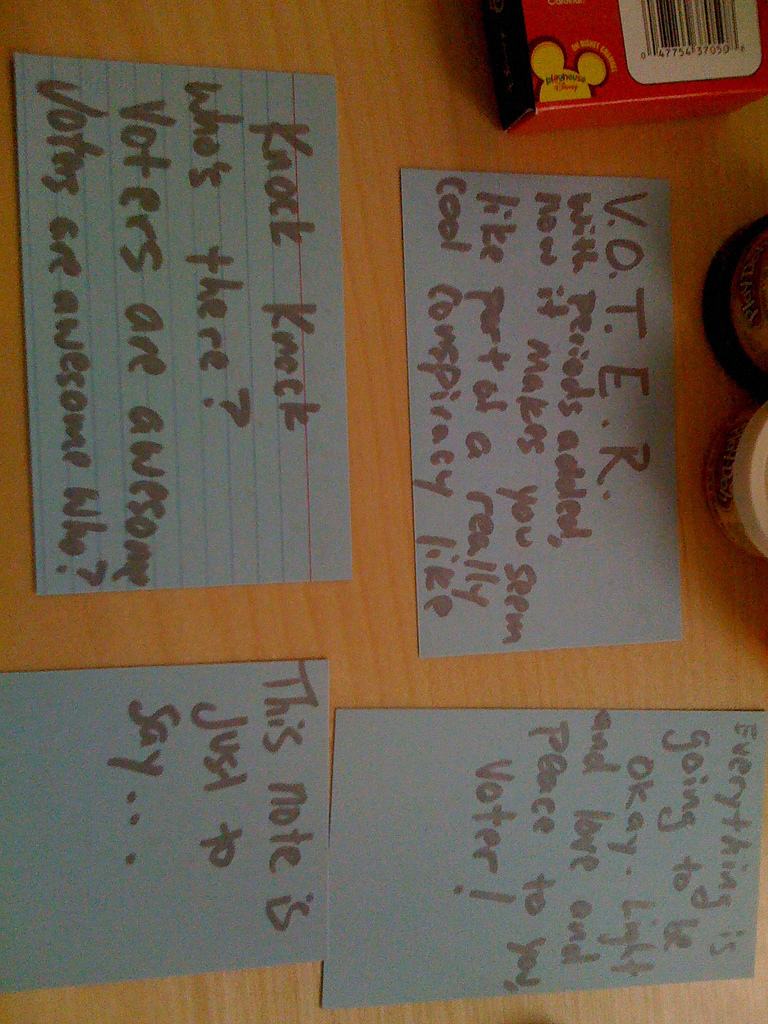 Knock Knock
who's there?
Voters are awesome
Voters are awesome who?
V.O.T.E.R.
with periods added,
now it makes you seem
like part of a really
cool conspiracy like
This note is
Just to
say...
Everything is
going to be
okay. Light
and love and
peace to you,
voter!
ON DISNEY CHANNEL
playhouse
Disney
0 47754 37050